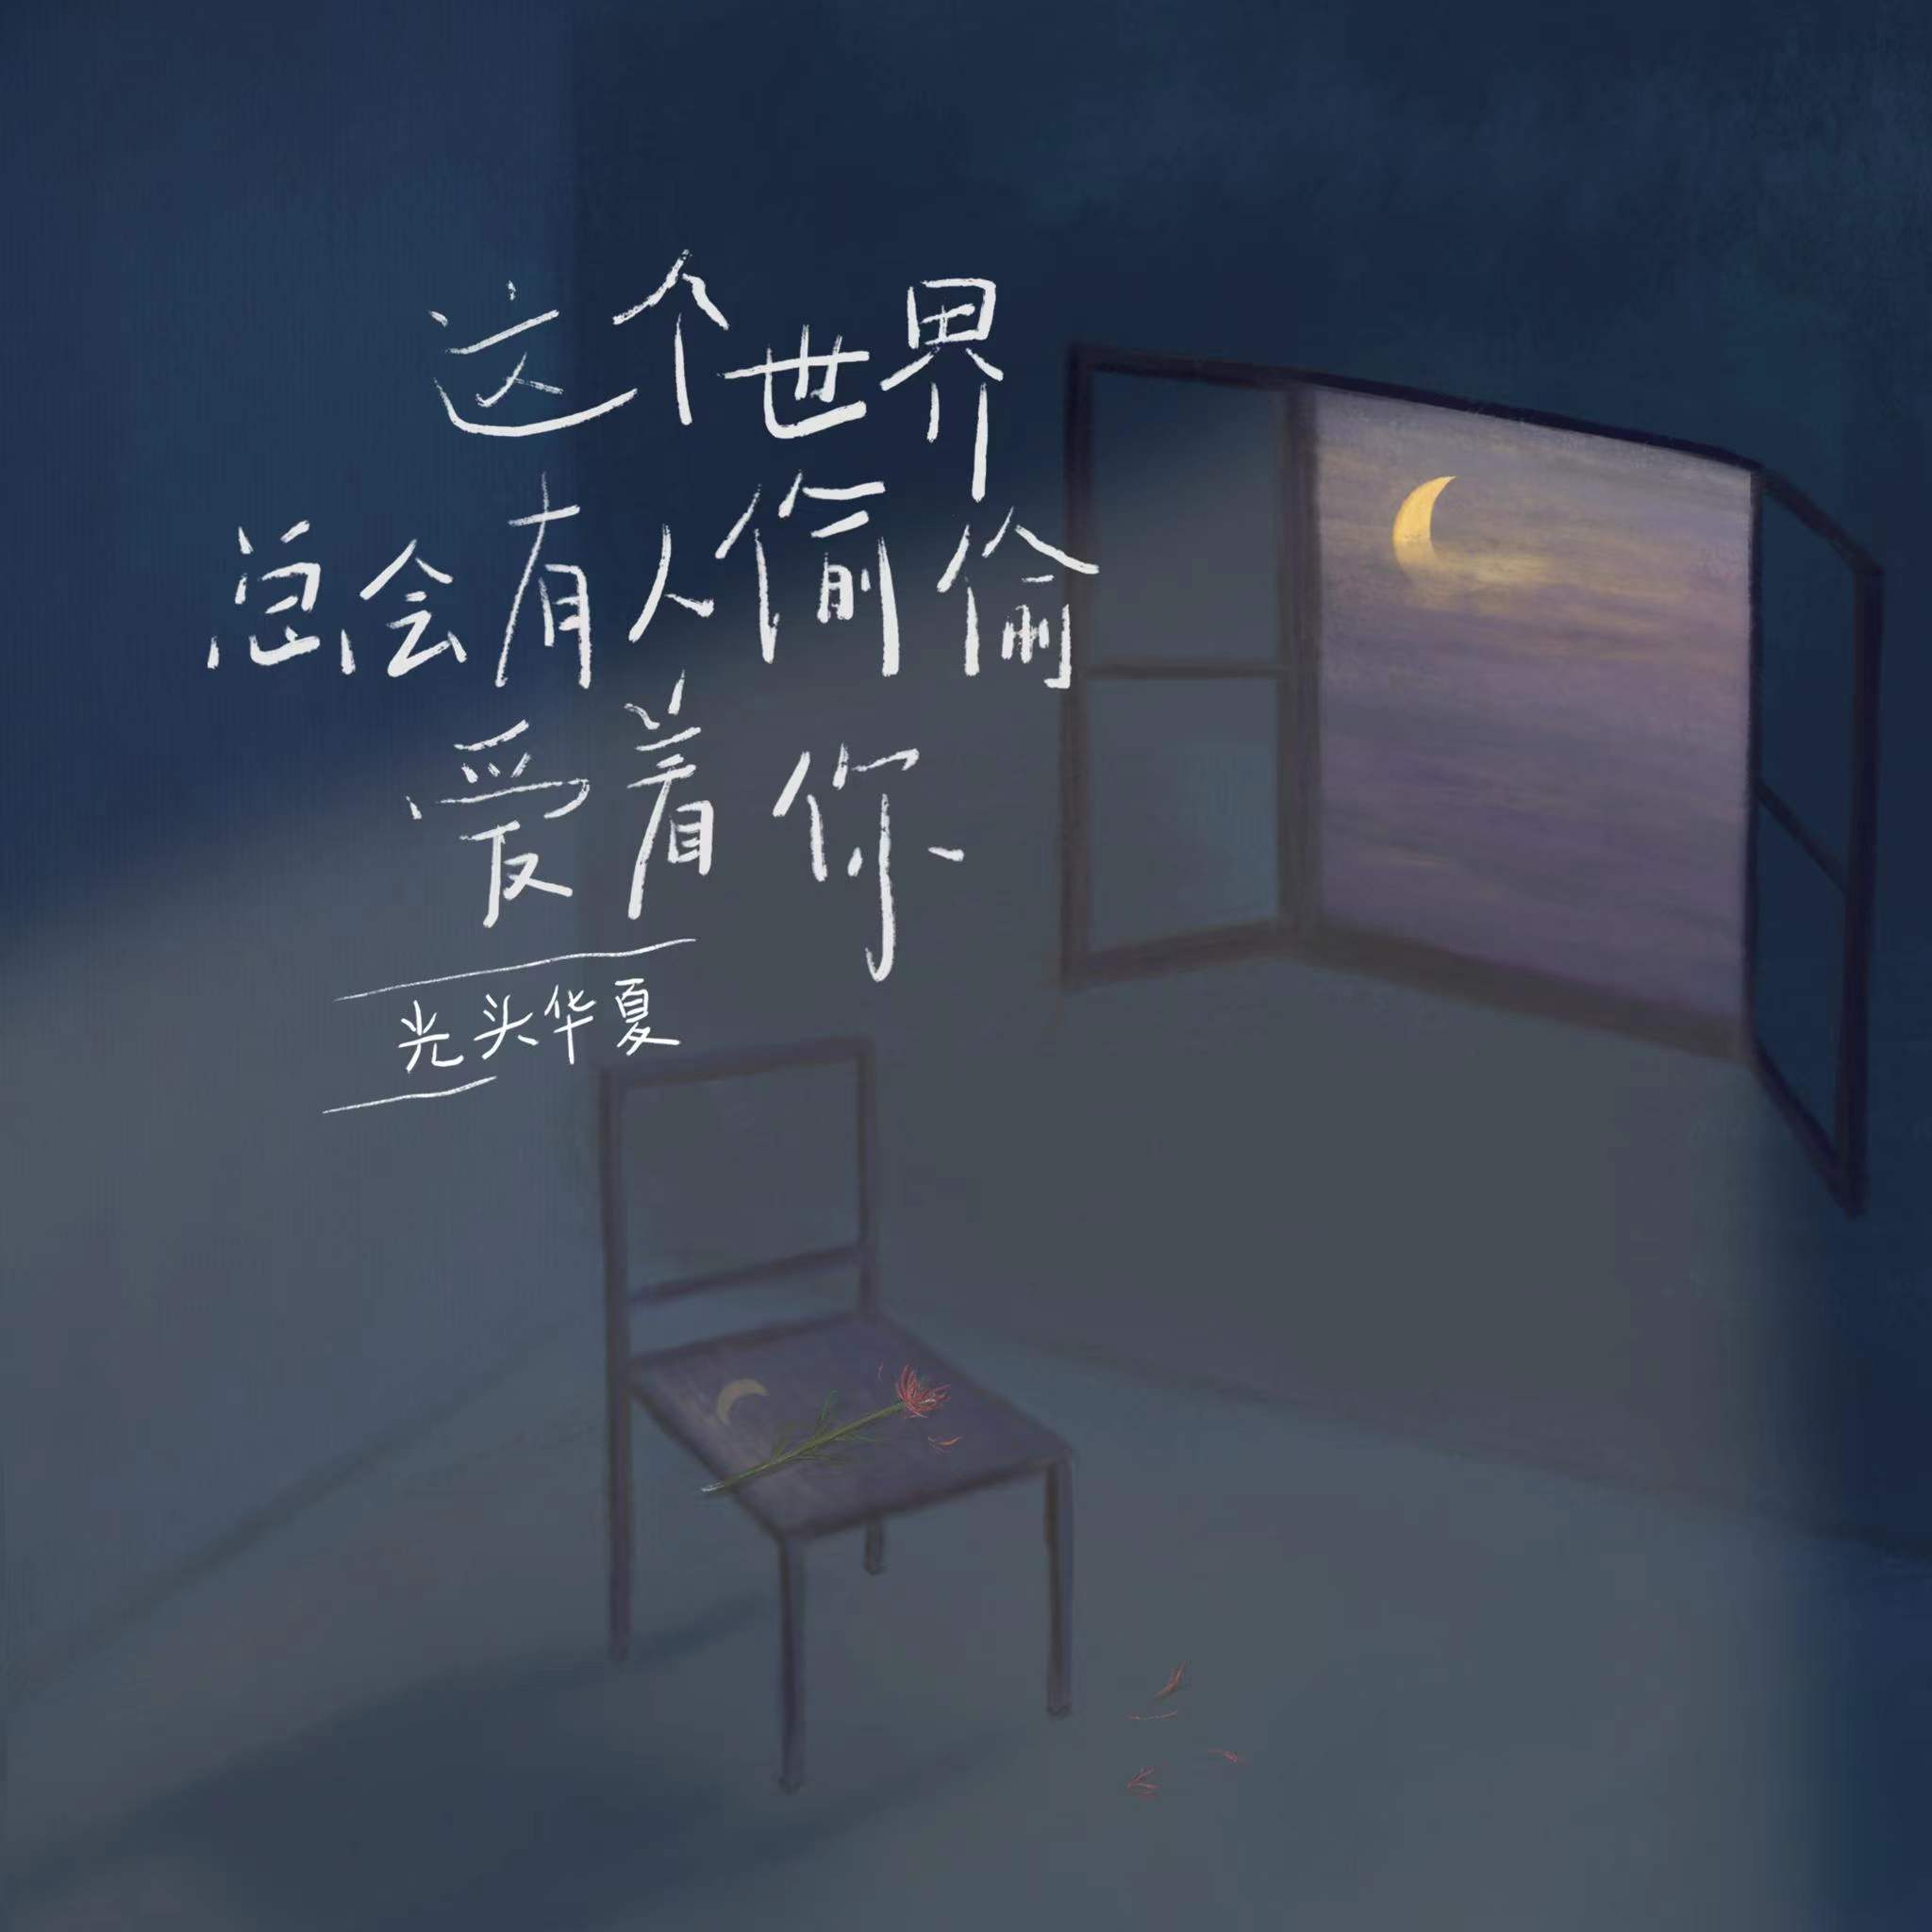 这个世界
总会有人偷偷
爱着你
光头华夏